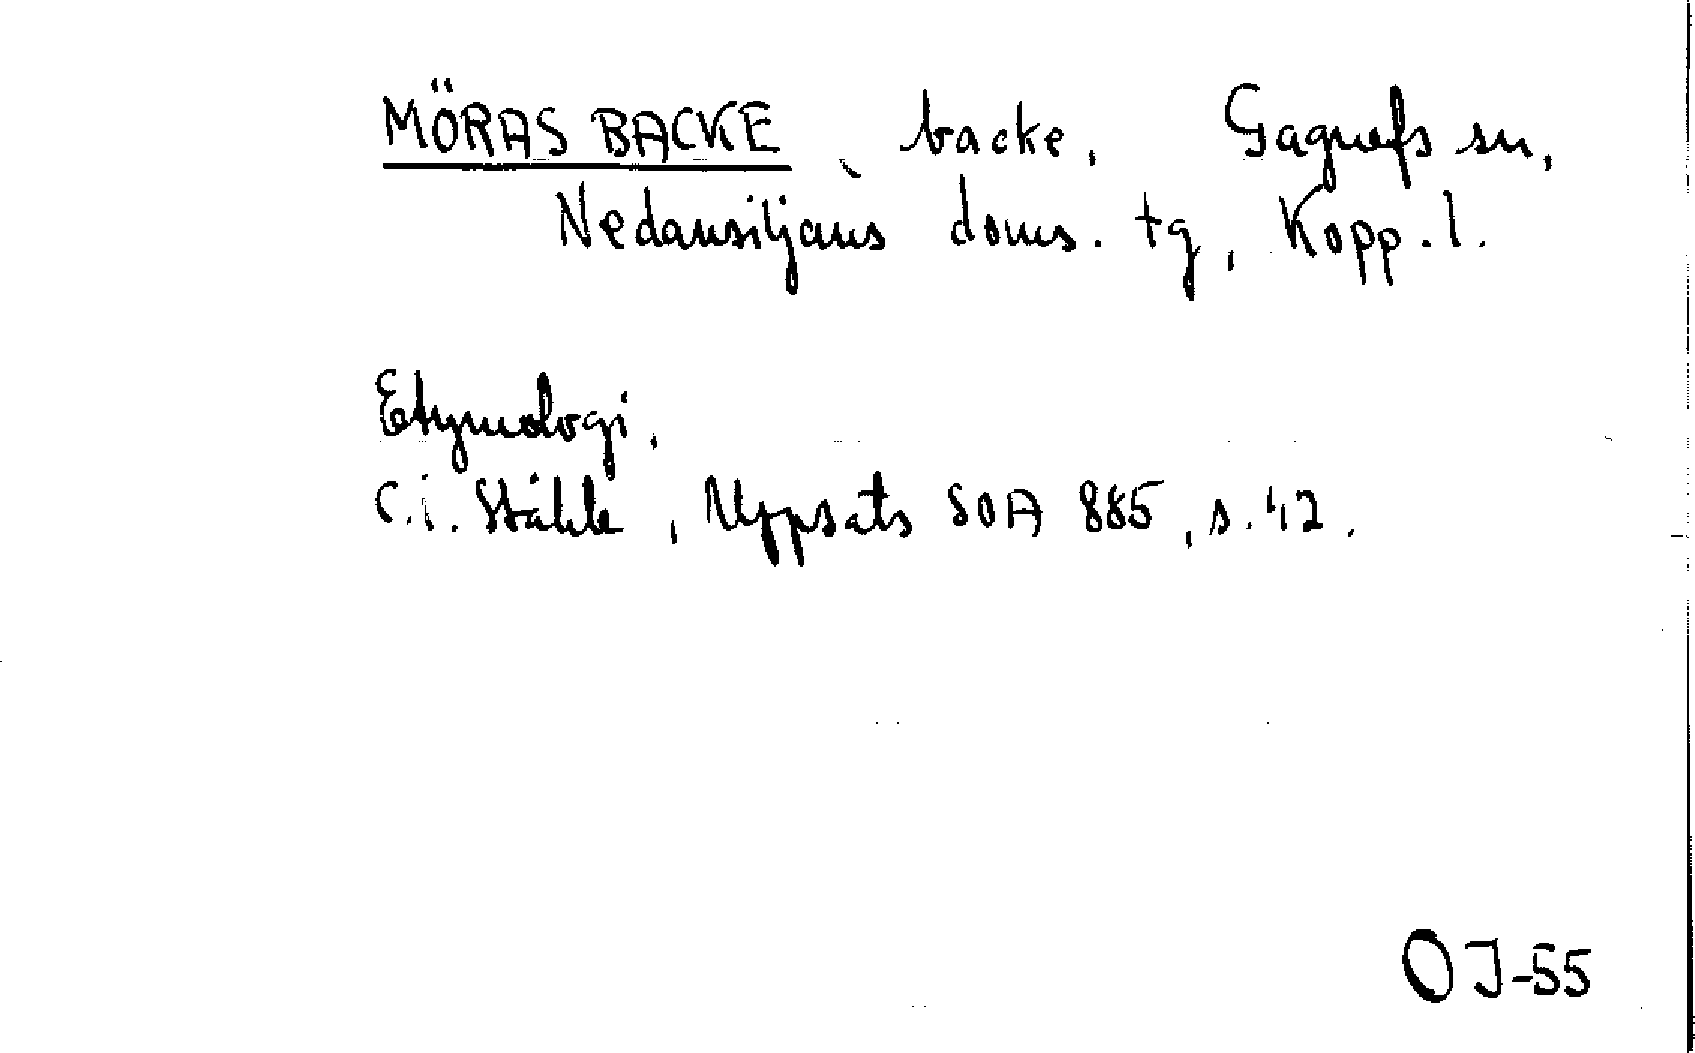 MÖRAS BACKE, backe, Gagnefs sn,
Nedansiljans doms. tg, Kopp. l.
Etymologi.
C.i. Ståhle, Uppsats SOA 885, s. 42.
OJ-55